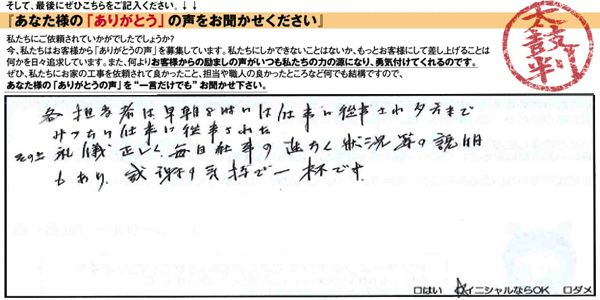 そして、最後にぜひこちらをご記入ください。↓↓
『あなた様の「ありがとう」の声をお聞かせください』
私たちにご依頼されていかがでしたでしょうか?
今、私たちはお客様から「ありがとうの声」を募集しています。私たちにしかできないことはないか、もっとお客様にして差し上げることは
何かを日々追求しています。また、何よりお客様からの励ましの声がいつも私たちの力の源になり、勇気付けてくれるのです。
ぜひ、私たちにお家の工事を依頼されて良かったこと、担当や職人の良かったところなど何でも結構ですので、
あなた様の「ありがとうの声」を“一言だけでも”お聞かせ下さい。
太鼓判
各担当者は早朝より仕事に従事され夕方まで
みっちり仕事に従事された
その上礼儀正しく、毎日仕事の進ちょく状況等の説明
もあり、感謝の気持で一杯です。
□はい ☆イニシャルならOK □ダメ